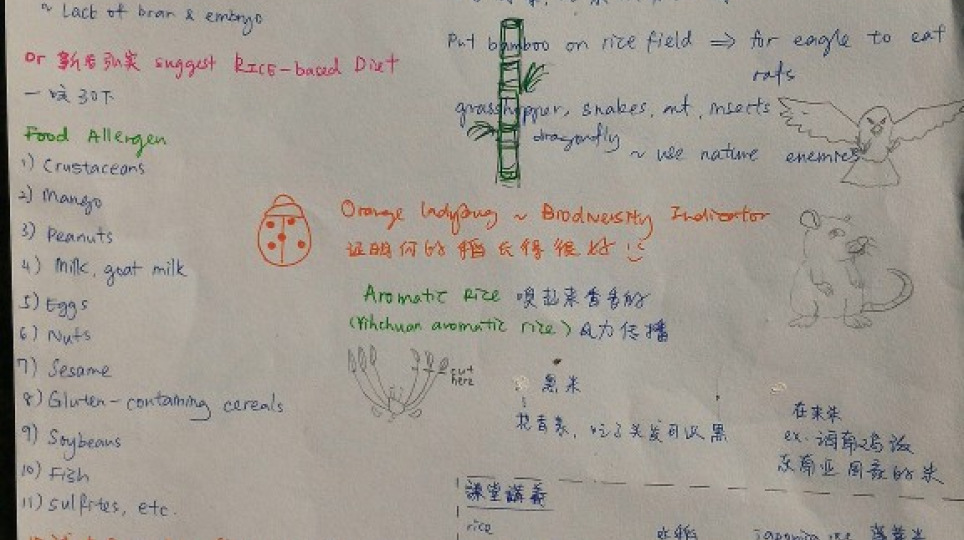 ~ Lack of bran & embryo
or suggest RICE-based Diet
一 30下
Food Allergen
1) Crustaceans
2) Mango
3) Peanuts
4) Milk, goat milk
5) Eggs
6) Nuts
7) Sesame
8) Gluten-containing cereals
9) Soybeans
10) Fish
11) Sulfites, etc.
Put bamboo on rice field ⇒ for eagle to eat
rats
grasshopper, snakes, insects
dragonfly ~ use nature enemies
Orange ladybug ~ Biodiversity Indicator
证明何的稻长得很好
Aromatic Rice 嗅起来香香的
(Yihchuan aromatic rice) 风力传播
cut
here
黑米
花青素, 吃了头发可以黑
在来米
ex.
东南亚国家的米
課堂講義
rice